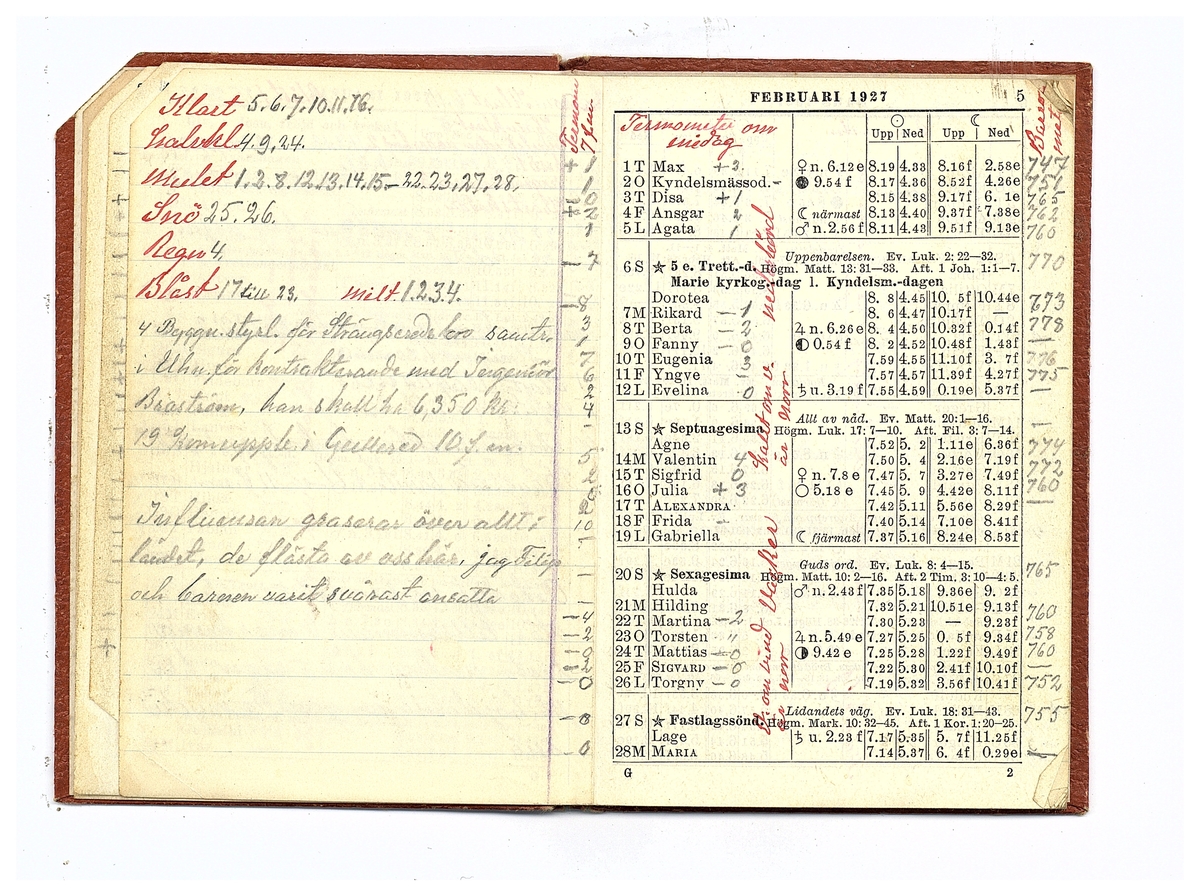 Klart 5.6.7.10.11.16.
Halvkl. 4.9.24.
Mulet 1.2.8.12.13.14.15.–22.23.27.28.
Snö 25.26.
Regn 4.
Blåst 17 till 23. milt 1.2.3.4.
4 Byggn. styrl. för Strängseredsbro samtr.
i Uhn för kontrakterande med Ingeniör
han skall ha 6,350 kr.
19 i Gullered 10 f.m.
Influensan graserar över allt i
landet, de flästa av oss här, jag Filip
och barnen varit svårast ansatta
Termom
7 f.m.
+ 1
1
+ 0
2
1
– 7
– 8
3
1
7
6
2
4
-
5
2
0
2
10
1
1
1
– 4
– 2
– 0
– 2
– 0
– 8
– 0
FEBRUARI 1927 5
Termometer om
middag
☉ ☾
Upp Ned Upp Ned
Barometer
1 T Max +3 ♀ n. 6.12 e 8.19 4.33 8.16 f 2.58 e 747
2 O Kyndelsmässod. - 9.54 f 8.17 4.36 8.52 f 4.26 e 751
3 T Disa +1 8.15 4.38 9.17 f 6. 1 e 765
4 F Ansgar 2 ☾ närmast 8.13 4.40 9.37 f 7.38 e 762
5 L Agata 1 ♂ n. 2.56 f 8.11 4.43 9.51 f 9.13 e 760
Uppenbarelsen. Ev. Luk. 2: 22—32.
6 S ☆ 5 e. Trett.-d. Högm. Matt. 13: 31—33. Aft. 1 Joh. 1: 1—7. 770
Marie kyrkog.-dag l. Kyndelsm.-dagen
Dorotea 8. 8 4.45 10. 5 f 10.44 e 773
7 M Rikard – 1 8. 6 4.47 10.17 f —
8 T Berta – 2 ♃ n. 6.26 e 8. 4 4.50 10.32 f 0.14 f 778
9 O Fanny – 0 ◐ 0.54 f 8. 2 4.52 10.48 f 1.43 f —
10 T Eugenia 3 7.59 4.55 11.10 f 3. 7 f 776
11 F Yngve 7.57 4.57 11.39 f 4.27 f 775
12 L Evelina 0 ♄ u. 3.19 f 7.55 4.59 0.19 e 5.37 f —
Allt av nåd. Ev. Matt. 20: 1—16.
13 S ☆ Septuagesima Högm. Luk. 17: 7—10. Aft. Fil. 3: 7—14. —
Agne 7.52 5. 2 1.11 e 6.36 f 774
14 M Valentin 4 7.50 5. 4 2.16 e 7.19 f 772
15 T Sigfrid 0 ♀ n. 7.8 e 7.47 5. 7 3.27 e 7.49 f 760
16 O Julia +3 ○ 5.18 e 7.45 5. 9 4.42 e 8.11 f —
17 T ALEXANDRA 7.42 5.11 5.56 e 8.29 f
18 F Frida - 7.40 5.14 7.10 e 8.41 f
19 L Gabriella ☾ fjärmast 7.37 5.16 8.24 e 8.53 f
Guds ord. Ev. Luk. 8: 4—15.
20 S ☆ Sexagesima Högm. Matt. 10: 2—16. Aft. 2 Tim. 3: 10—4: 5. 765
Hulda ♂ n. 2.43 f 7.35 5.18 9.36 e 9. 2 f
21 M Hilding 7.32 5.21 10.51 e 9.13 f 760
22 T Martina – 2 7.30 5.23 — 9.23 f
23 O Torsten " ♃ n. 5.49 e 7.27 5.25 0. 5 f 9.34 f 758
24 T Mattias – 0 9.42 e 7.25 5.28 1.22 f 9.49 f 760
25 F SIGVARD – 0 7.22 5.30 2.41 f 10.10 f —
26 L Torgny – 0 7.19 5.32 3.56 f 10.41 f 752
Lidandets väg. Ev. Luk. 18: 31—43.
27 S ☆ Fastlagssönd. Högm. Mark. 10: 32—45. Aft. 1 Kor. 1: 20—25. 755
Lage ♄ u. 2.23 f 7.17 5.35 5. 7 f 11.25 f
28 M MARIA 7.14 5.37 6. 4 f 0.29 e —
G 2
vind vacker
är norr
kallt om
är norr